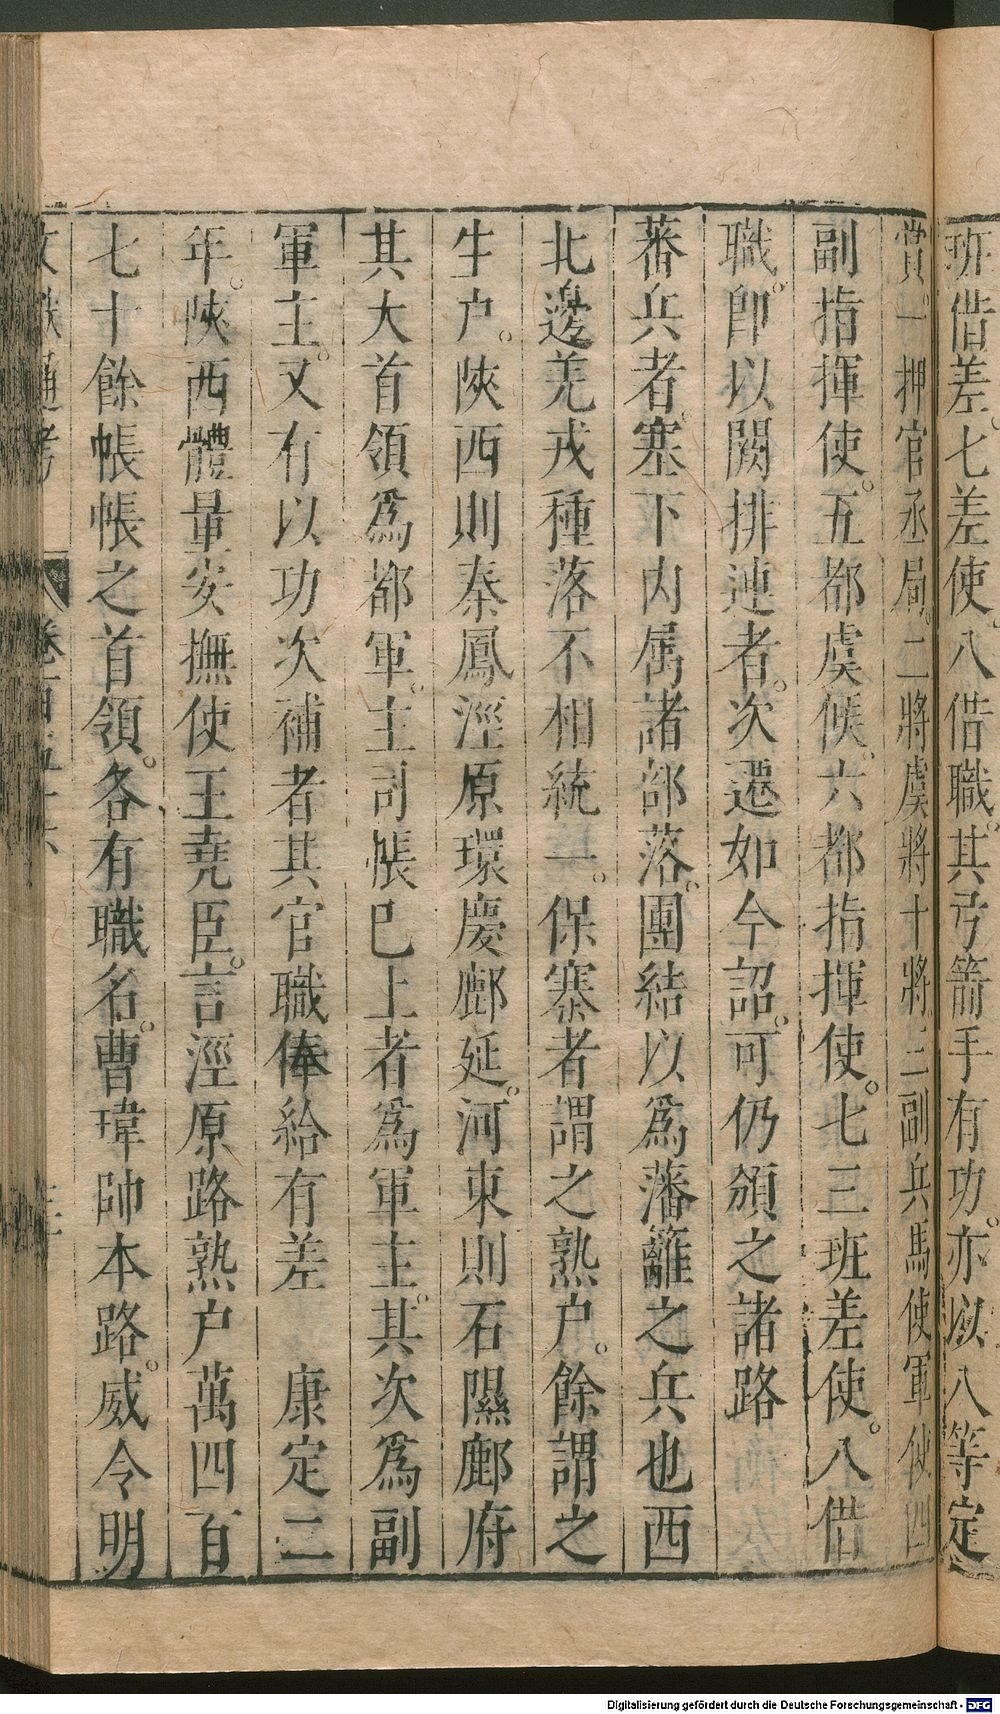 班借差七差使八借職其弓箭手有功亦以八等定
賞一押官丞局二將虞將十將三副兵馬使軍使四
副指揮使五都虞候六都指揮使七三班差使八借
職即以闕排連者次遷如今詔可仍頒之諸路
蕃兵者塞下内属諸部落團結以爲藩籬之兵也西
北邊羌戎種落不相統一保塞者謂之熟户餘謂之
生户陝西則秦鳳涇原環慶鄜延河東則石隰鄜府
其大首領爲都軍主司帳巳上者爲軍主其次爲副
軍主又有以功次補者其官職俸給有差　康定二
年陝西體量安撫使王堯臣言涇原路熟户萬四百
七十餘帳帳之首領各有職名曹瑋帥本路威令明
通考
Digitalisierung gefördert durch die Deutsche Forschungsgemeinschaft - DFG